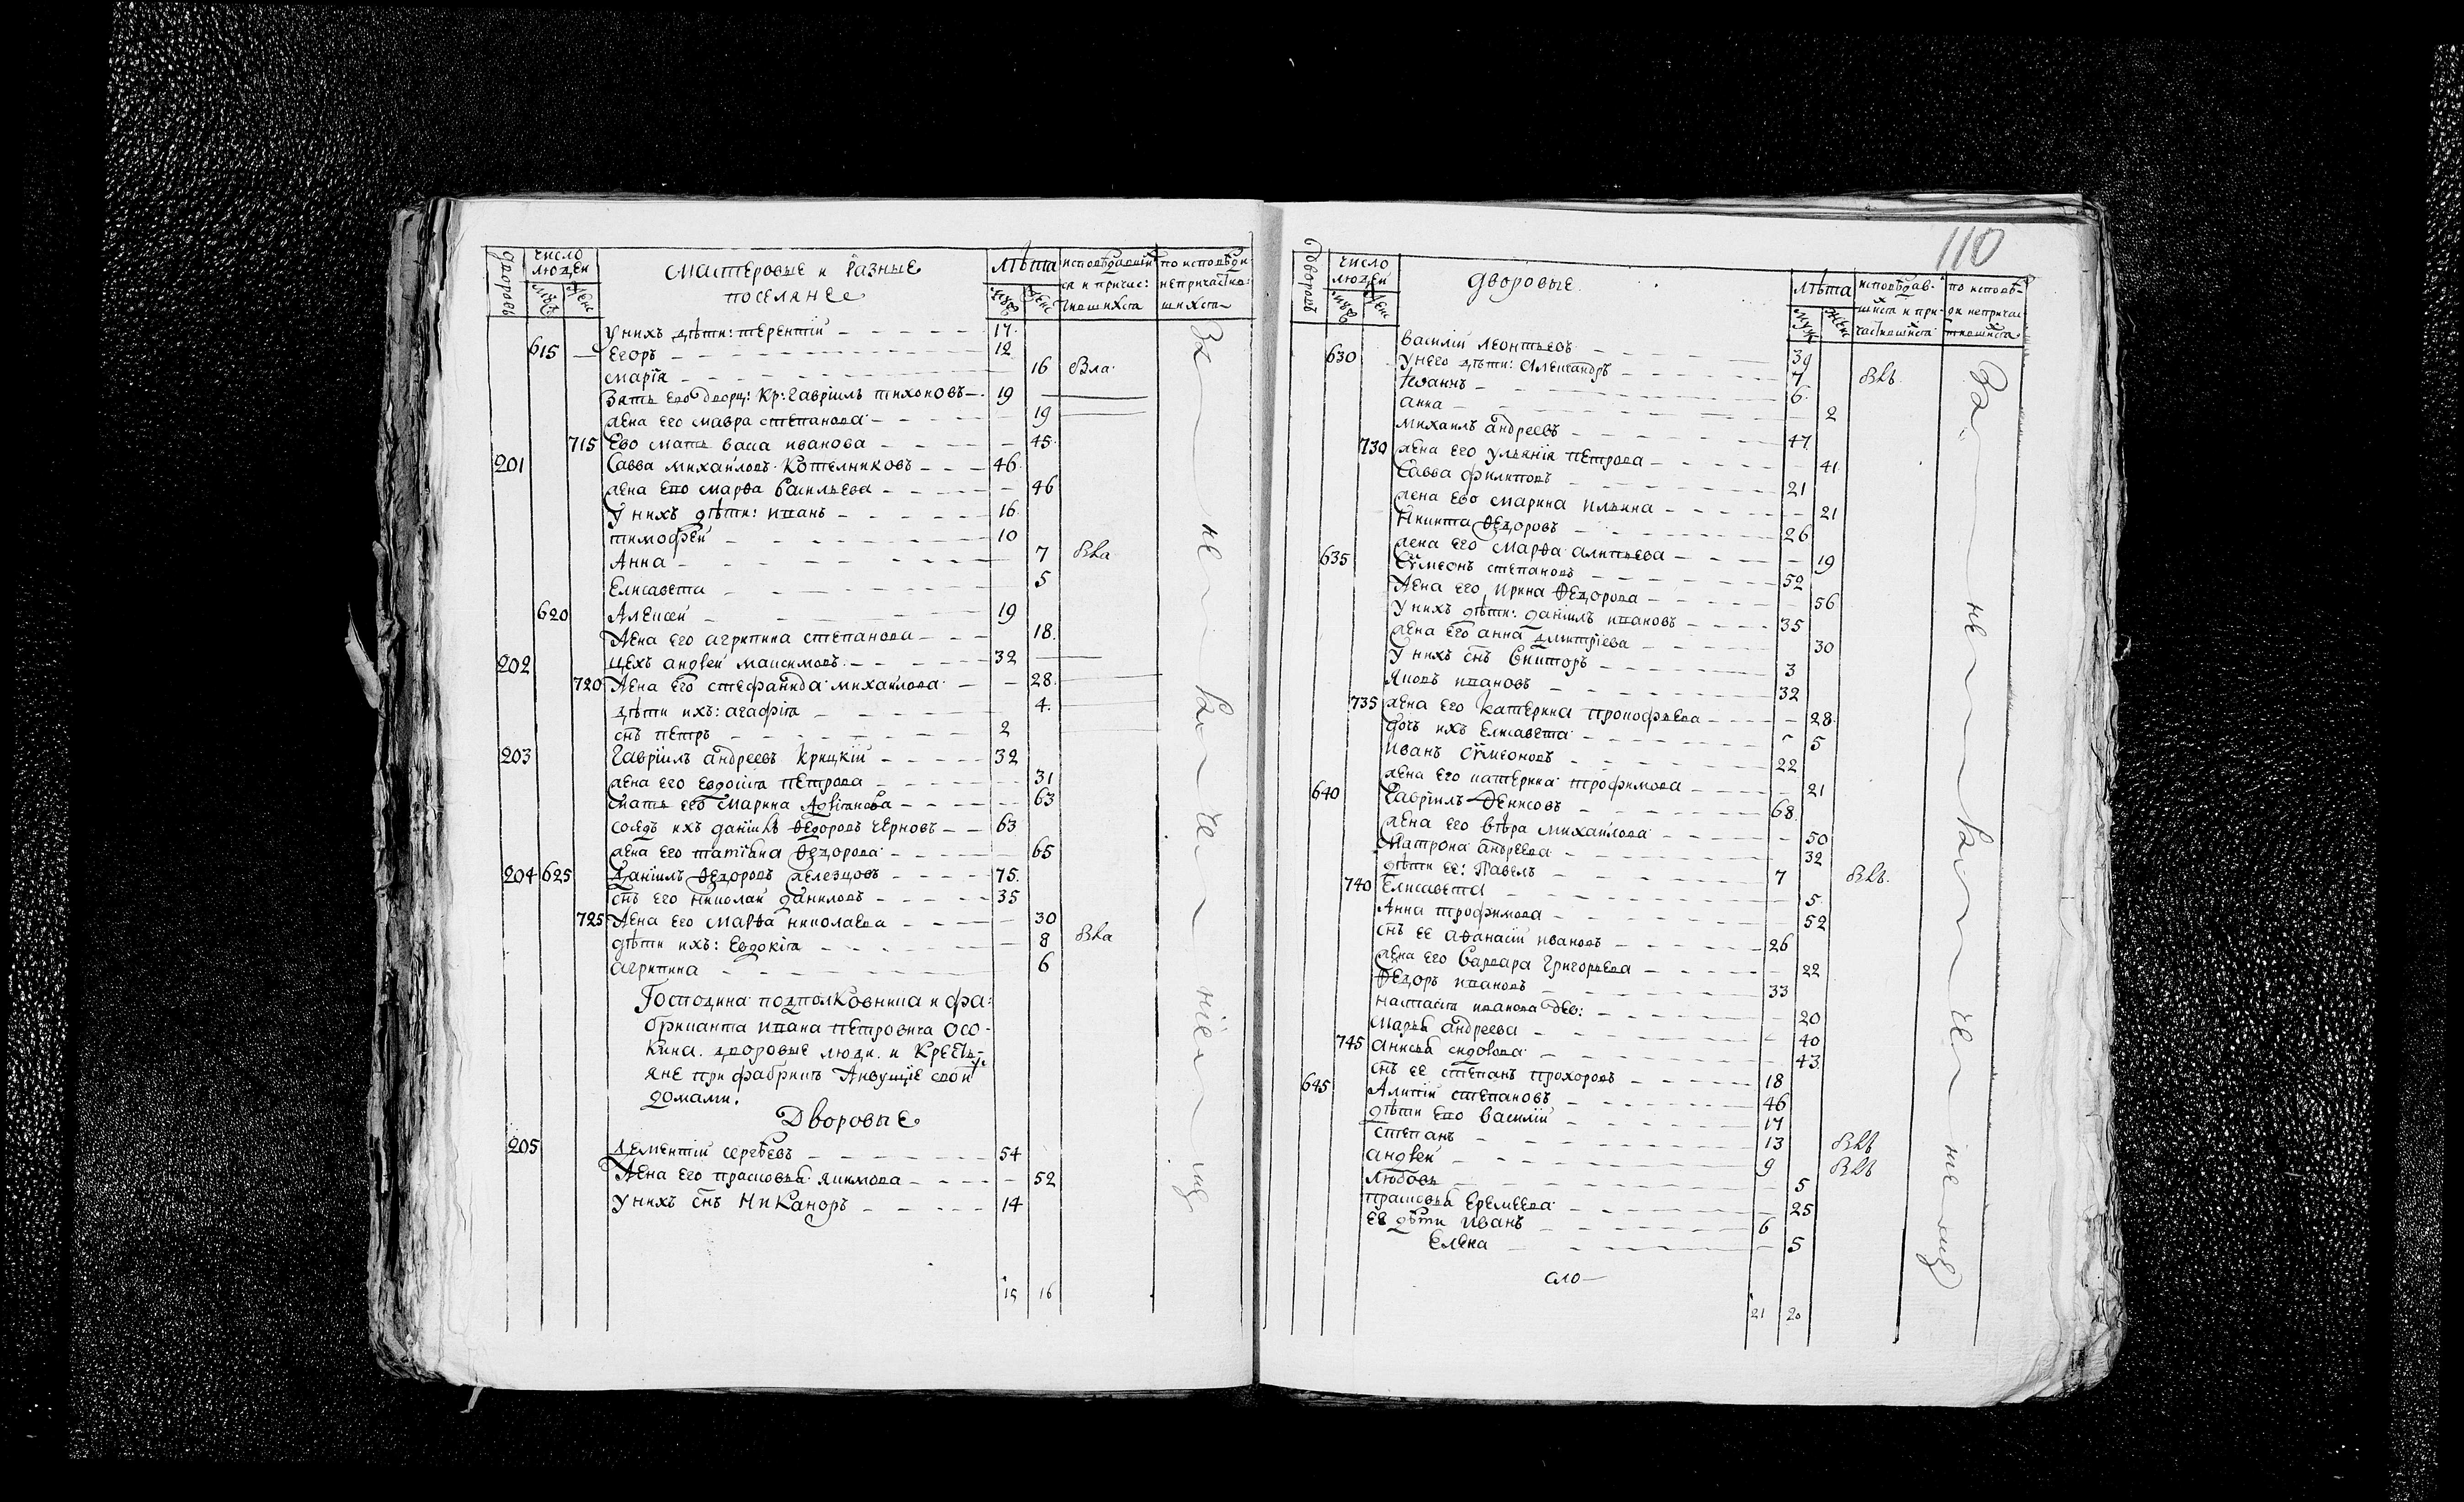 дворовъ
число людей
муж
жен
мастеровые и разные поселяне
лѣта
муж
жен
исповѣдавшихся и причастившихся
по исповѣди непричастившихся
у нихъ дѣти: терентій 17
615 Егоръ 12
марія 16 Была
Зять его дворц: кр: гаврилъ тихоновъ 19
жена его мавра степанова 19
715 Ево мать васа иванова 45
201 Савва михайловъ котелниковъ 46
жена ево марѳа васильева 46
у нихъ дѣти: иванъ 16
тимофей 10
Анна 7 Была
Елисавета 5
620 Алексей 19
жена его агрипина степанова 18
202 цехъ андрей максимовъ 32
720 жена его стефанида михайлова 28
дѣти ихъ: агафія 4
снъ петръ 2
203 Гавріилъ андреевъ крицкій 32
жена его евдокія петрова 31
мать его марина 63
соседъ ихъ даніилъ ѳедоровъ черновъ 63
жена его татіяна ѳедорова 65
204 625 Даніилъ ѳедоровъ железцовъ 75
снъ его николай даниловъ 35
725 жена его марѳа николаева 30
дѣти ихъ: евдокія 8 Была
агрипина 6
Господина подполковника и фа-
бриканта ивана петровича осо-
кина дворовые люди и кресть-
яне при фабрикѣ живущіе своими
домами.
Дворовые
205 Дементій сергѣевъ 54
жена его прасковья якимова 52
у нихъ снъ никаноръ 14
15 16
За не
110
дворовъ
число людей
муж
жен
дворовые
лѣта
муж
жен
исповѣдавшихся и причастившихся
по исповѣди непричастившихся
василій леонтьевъ 39
630 у него дѣти: александръ 7 Былъ
іоаннъ 6
анна 2
михаилъ андреевъ 47
730 жена его ульянія петрова 41
Савва филиповъ 21
жена ево марина ильина 21
никита ѳедоровъ 26
жена его марѳа алипьева 19
635 Сѵмеонъ степановъ 52
жена его ирина ѳедорова 56
у нихъ дѣти: даніилъ ивановъ 35
жена его анна дмитріева 30
у нихъ снъ викторъ 3
яковъ ивановъ 32
735 жена его катерина прокофьева 28
дочь ихъ елисавета 5
иванъ сѵмеоновъ 22
жена его катерина трофимова 21
640 Гавріилъ денисовъ 68
жена его вѣра михайлова 50
матрона андреева 32
дѣти ее: павелъ 7 Былъ
740 Елисавета 5
Анна трофимова 52
снъ ее аѳанасій ивановъ 26
жена его варвара григорьева 22
ѳедоръ ивановъ 33
настасія иванова дев: 20
марья андреева 40
745 анисья сидорова 43
снъ ее степанъ прохоровъ 18
645 Алипій степановъ 46
дѣти ево василій 17
степанъ 13 Былъ
андрей 9 Былъ
любовь 5
прасковья еремеева 25
ее дѣти иванъ 6
елена 5
сло
21 20
За не